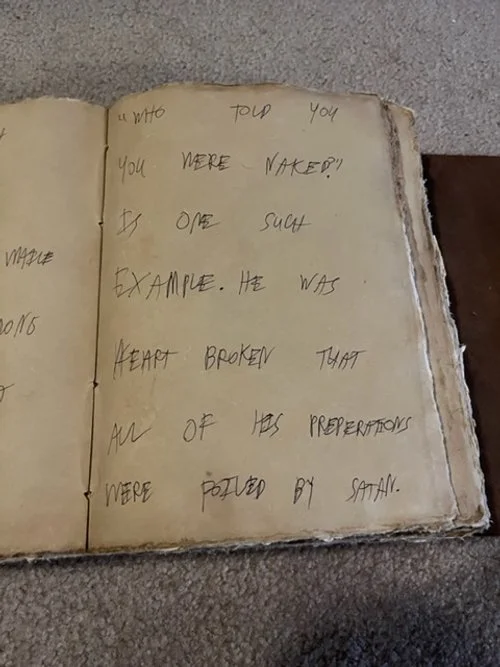 "WHO TOLD YOU
YOU WERE NAKED?"
IS ONE SUCH
EXAMPLE. HE WAS
HEART BROKEN THAT
ALL OF HIS PREPERATIONS
WERE FOILED BY SATAN.